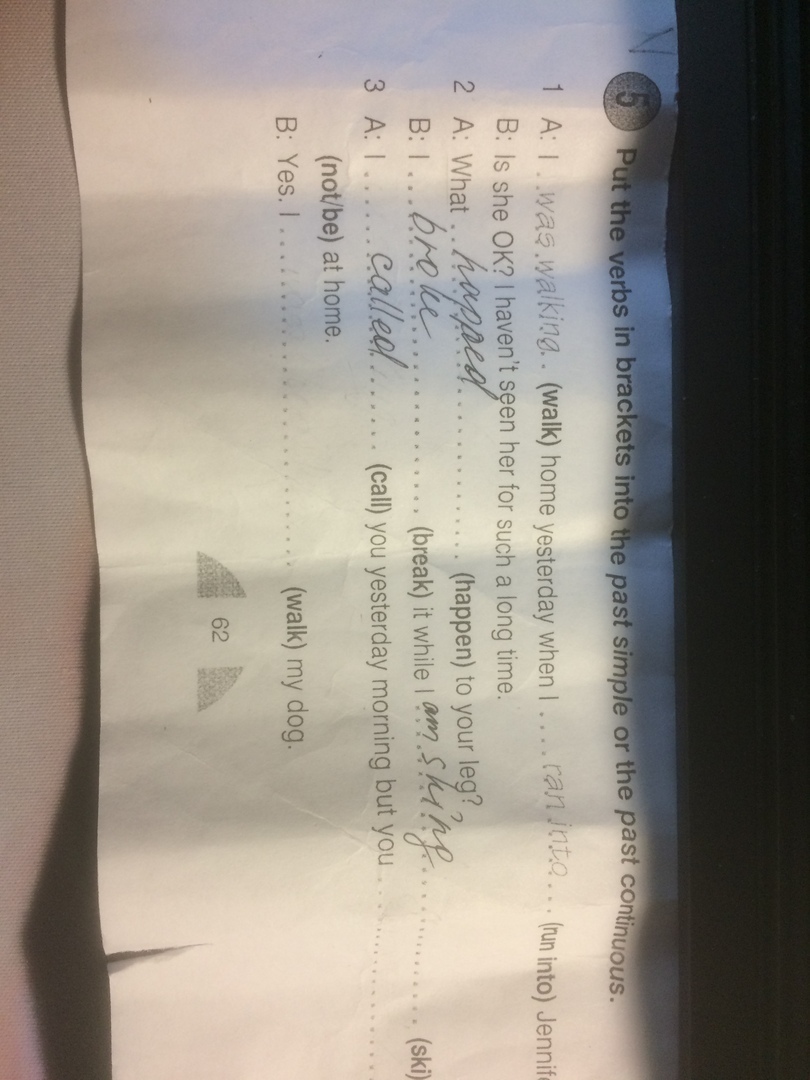 5 Put the verbs in brackets into the past simple or the past continuous.
1 A: I ..was.walking.. (walk) home yesterday when I ....ran into... (run into) Jennife
B: Is she OK? I haven't seen her for such a long time.
2 A: What ..happed.............. (happen) to your leg?
B: I ...broke.................. (break) it while I am sking.............. (ski)
3 A: I ......called....... (call) you yesterday morning but you ....................
(not/be) at home.
B: Yes. I .................................. (walk) my dog.
62